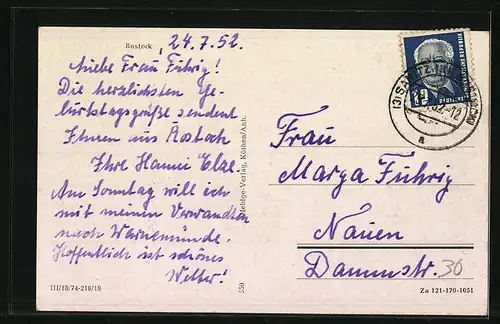 Rostock, 24.7.52.
Liebe Frau Führig!
Die herzlichsten Ge-
burtstagsgrüße sendent
Ihnen aus Rostock
Ihre Hanni
Am Sonntag will ich
mit meinen Verwandten
nach Warnemünde.
Hoffentlich ist schönes
Wetter!
III/18/74-218/19
-Verlag, Köthen/Anh.
550
12
DEUTSCHE
DEMOKRATISCHE REPUBLIK
a
Frau
Marga Führig
Nauen
Dammstr. 30
Za 121-170-1051